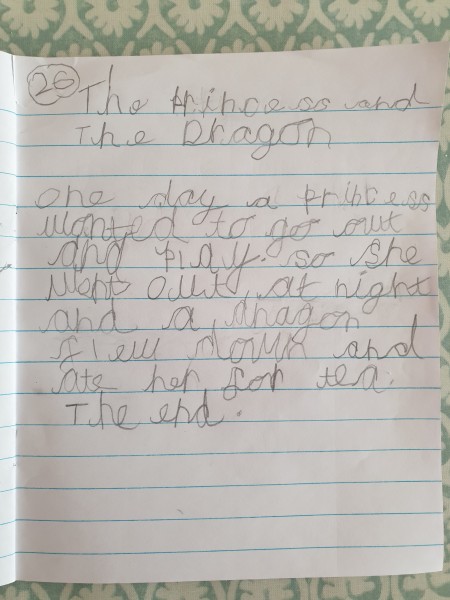 26 The princess and
The Dragon
One day a princess
wanted to go out
and play. so she
went out at night
and a dragon
flew down and
ate her for tea.
The end.